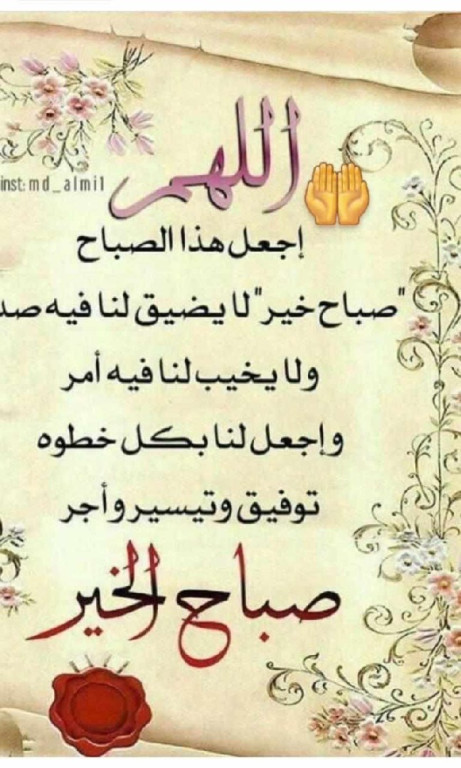 اللهم
inst: md_almi1
إجعل هذا الصباح
"صباح خير" لا يضيق لنا فيه
ولا يخيب لنا فيه أمر
وإجعل لنا بكل خطوه
توفيق وتيسير وأجر
صباح الخير